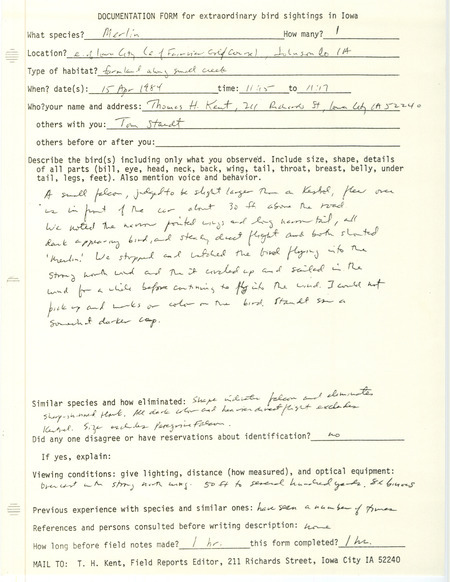 DOCUMENTATION FORM for extraordinary bird sightings in Iowa
What species? Merlin How many? 1
Location? e. of Iowa City (e of Fairview Golf Course), Johnson Co IA
Type of habitat? farmland along small creek
When? date(s): 15 Apr 1984 time: 11:15 to 11:17
Who?your name and address: Thomas H. Kent, 211 Richards St, Iowa City IA 52240
others with you: Tom Staudt
others before or after you:
Describe the bird(s) including only what you observed. Include size, shape, details
of all parts (bill, eye, head, neck, back, wing, tail, throat, breast, belly, under
tail, legs, feet). Also mention voice and behavior.
A small falcon, judged to be slight larger than a Kestrel, flew over
us in front of the car about 30 ft above the road.
We noted the narrow pointed wings and long narrow tail, all
dark appearing bird, and steady direct flight and both shouted
'Merlin'. We stopped and watched the bird flying into the
strong north wind and then it circled up and sailed in the
wind for a while before continuing to fly into the wind. I could not
pick up and marks or color on the bird. Staudt saw a
somewhat darker cap.
Similar species and how eliminated: Shape indicates falcon and eliminates
Sharp-shinned Hawk. All dark color and direct flight excludes
Kestrel. Size excludes Peregrine Falcon.
Did any one disagree or have reservations about identification? no
If yes, explain:
Viewing conditions: give lighting, distance (how measured), and optical equipment:
Overcast with strong north wing. 50 ft to several hundred yards. 8x binocs
Previous experience with species and similar ones: have seen a number of times
References and persons consulted before writing description: none
How long before field notes made? 1 hr. this form completed? 1 hr.
MAIL TO: T. H. Kent, Field Reports Editor, 211 Richards Street, Iowa City IA 52240